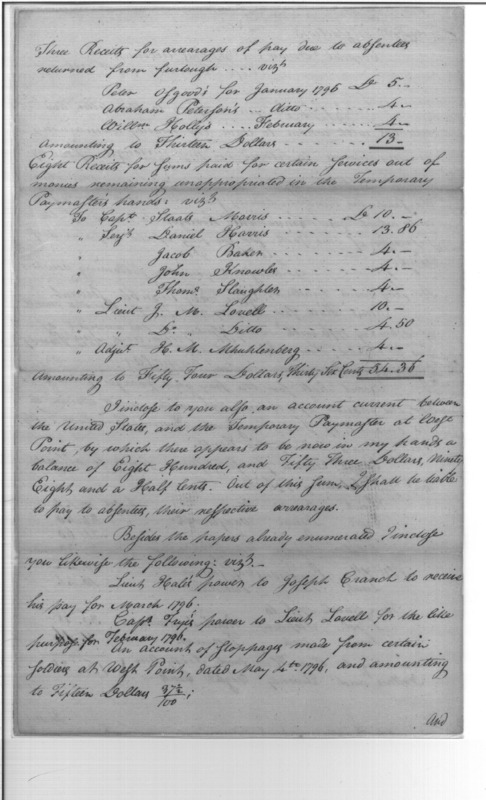 Three Receits for arrearages of pay due to absentees
returned from furlough .... vizt
Peter Osgood's for January 1796 Dr 5.-
Abraham Peterson's .. ditto ...... 4.-
Willm Holly's .... February ...... 4.-
amounting to Thirteen Dollars ...... 13.-
Eight Receits for sums paid for certain services out of
monies remaining unappropriated in the Temporary
Paymaster's hands: vizt
To Capt. Staats Morris ..... Dr 10.-
" Serjt. Daniel Harris ..... 13.86
" Jacob Baker ..... 4.-
" John Knowles ..... 4.-
" Thoms. Slaughter ..... 4.-
" Lieut J. M. Lovell ..... 10.-
" " Do. Ditto ..... 4.50
" Adjut. H. M. Mhuhlenberg ... 4.-
amounting to Fifty Four Dollars, Thirty Six Cents 54.36
I inclose to you also an account current between
the United States, and the Temporary Paymaster at West
Point, by which there appears to be now in my hands a
balance of Eight Hundred, and Fifty Three Dollars, Ninety
Eight, and a Half Cents. Out of this sum, I shall be liable
to pay to absentees, their respective arrearages.
Besides the papers already enumerated I inclose
you likewise the following: vizt. -
Lieut Hale's power to Joseph Cranch to receive
his pay for March 1796;
Capt. Frye's power to Lieut Lovell for the like
purpose for February 1796.
An account of stoppages made from certain
soldiers at West Point, dated May 4th 1796, and amounting
to Fifteen Dollars 37½/100;
And